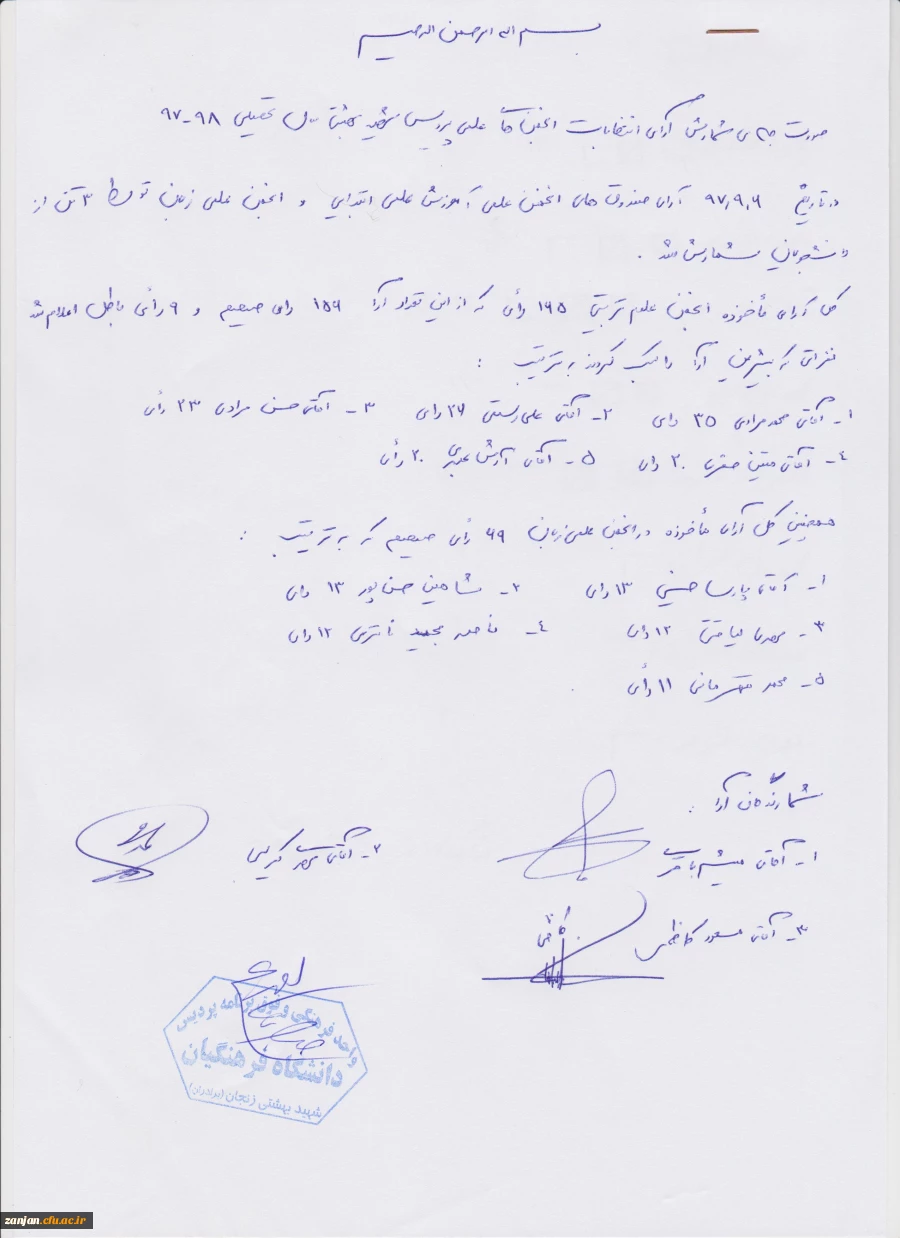 بسم اله الرحمن الرحیم
صورت جلسه ی شمارش آرای انتخابات انجمن های علمی پردیس شهید بهشتی سال تحصیلی ۹۸-۹۷
در تاریخ ۹۷٫۹٫۶ آرای صندوق های انجمن علمی آموزش علمی ابتدایی و انجمن علمی زبان توسط ۳ تن از
دانشجویان شمارش شد .
کل آرای مأخوذه انجمن علوم تربیتی ۱۶۵ رأی که از این تعداد آرا ۱۵۶ رای صحیح و ۹ رأی باطل اعلام شد
نفراتی که بیشترین آرا را کسب کردند به ترتیب :
۱- آقای محمد مرادی ۳۵ رای ۲- آقای علی رستمی ۲۶ رای ۳- آقای حسن مرادی ۲۳ رأی
۴- آقای متین صفری ۲۰ رای ۵- آقای آرش ۲۰ رأی
همچنین کل آرای مأخوذه در انجمن علمی زبان ۶۹ رأی صحیح که به ترتیب :
۱- آقای پارسا حسینی ۱۳ رای ۲- شاهین حسن پور ۱۳ رای
۳- مهدی ۱۲ رای ۴- مجید ۱۲ رای
۵- محمد ۱۱ رأی
شمارندگان آرا :
۱- آقای میثم ۲- آقای محمد کریمی
۳- آقای مسعود کاظمی
واحد فرهنگی و فوق برنامه پردیس
دانشگاه فرهنگیان
شهید بهشتی زنجان (برادران)
zanjan.cfu.ac.ir